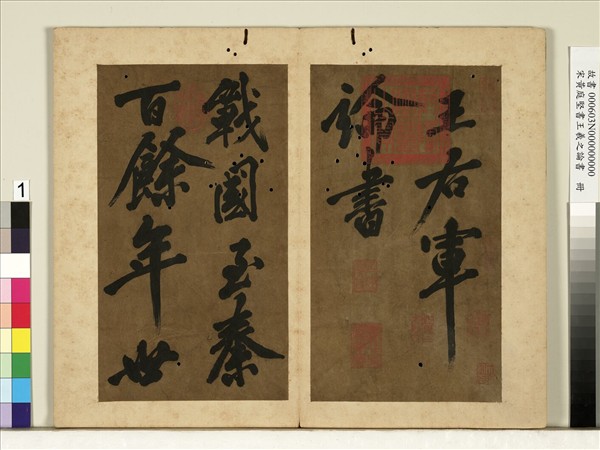 王右軍
論書
戰國至秦
百餘年世
故書 000603N000000000
宋黃庭堅書王羲之論書 冊
1